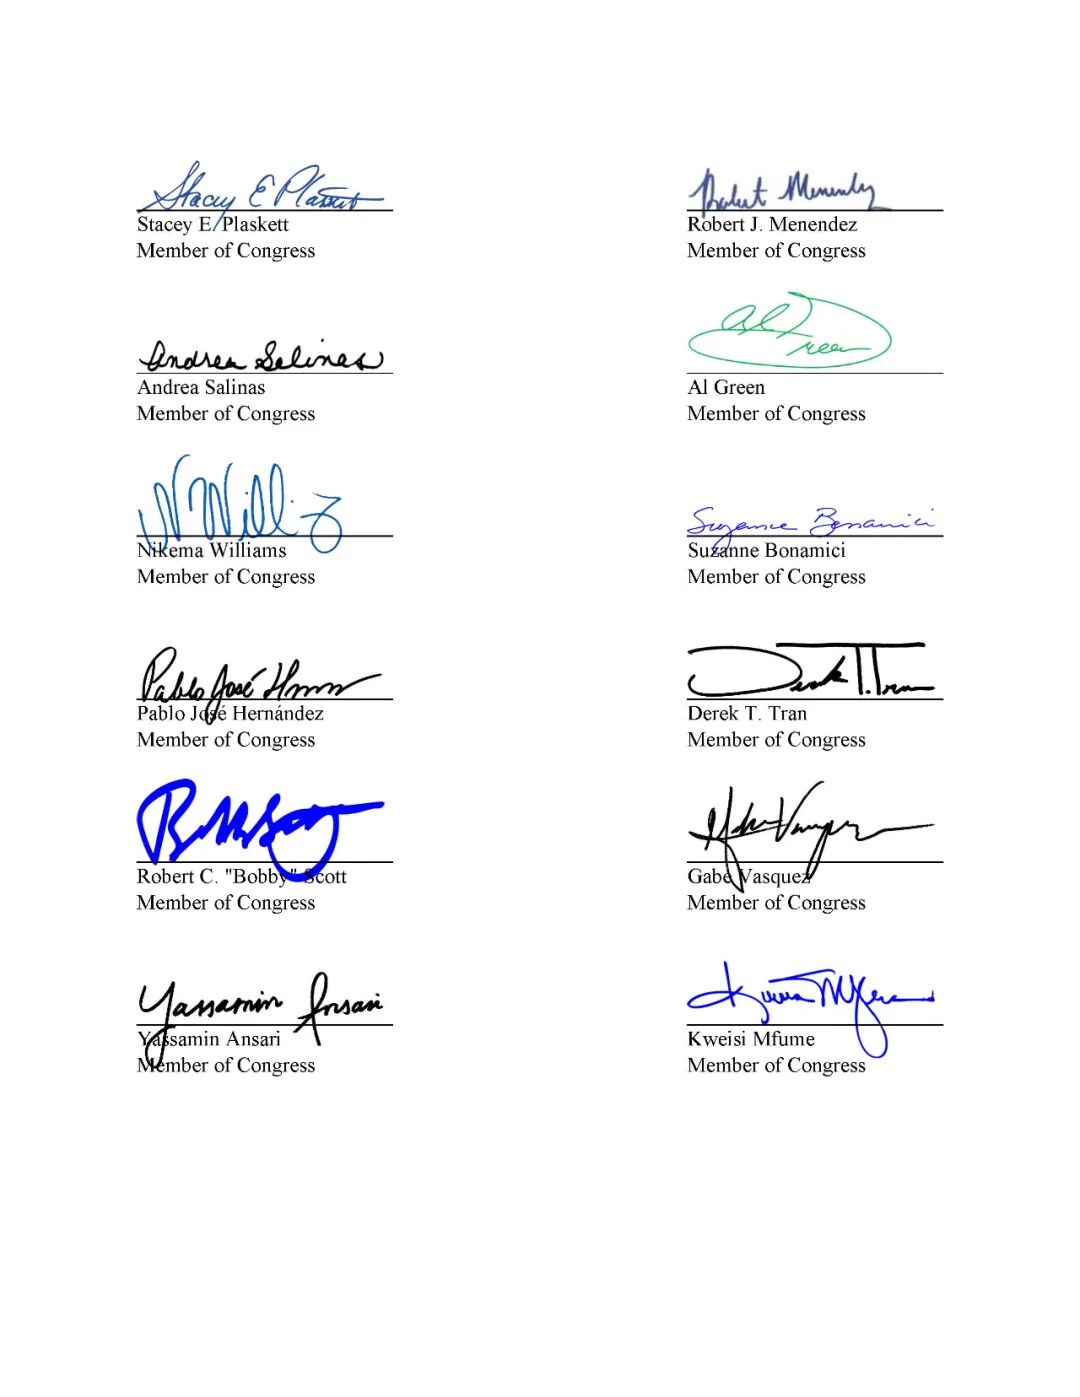 Stacey E Plaskett
Stacey E. Plaskett
Member of Congress
Robert Menendez
Robert J. Menendez
Member of Congress
Andrea Salinas
Andrea Salinas
Member of Congress
Al Green
Al Green
Member of Congress
N Willi
Nikema Williams
Member of Congress
Suzanne Bonamici
Suzanne Bonamici
Member of Congress
Pablo José
Pablo José Hernández
Member of Congress
Derek T. Tran
Derek T. Tran
Member of Congress
Robert C. "Bobby" Scott
Member of Congress
Gabe Vasquez
Member of Congress
Yassamin Ansari
Yassamin Ansari
Member of Congress
Kweisi Mfume
Kweisi Mfume
Member of Congress